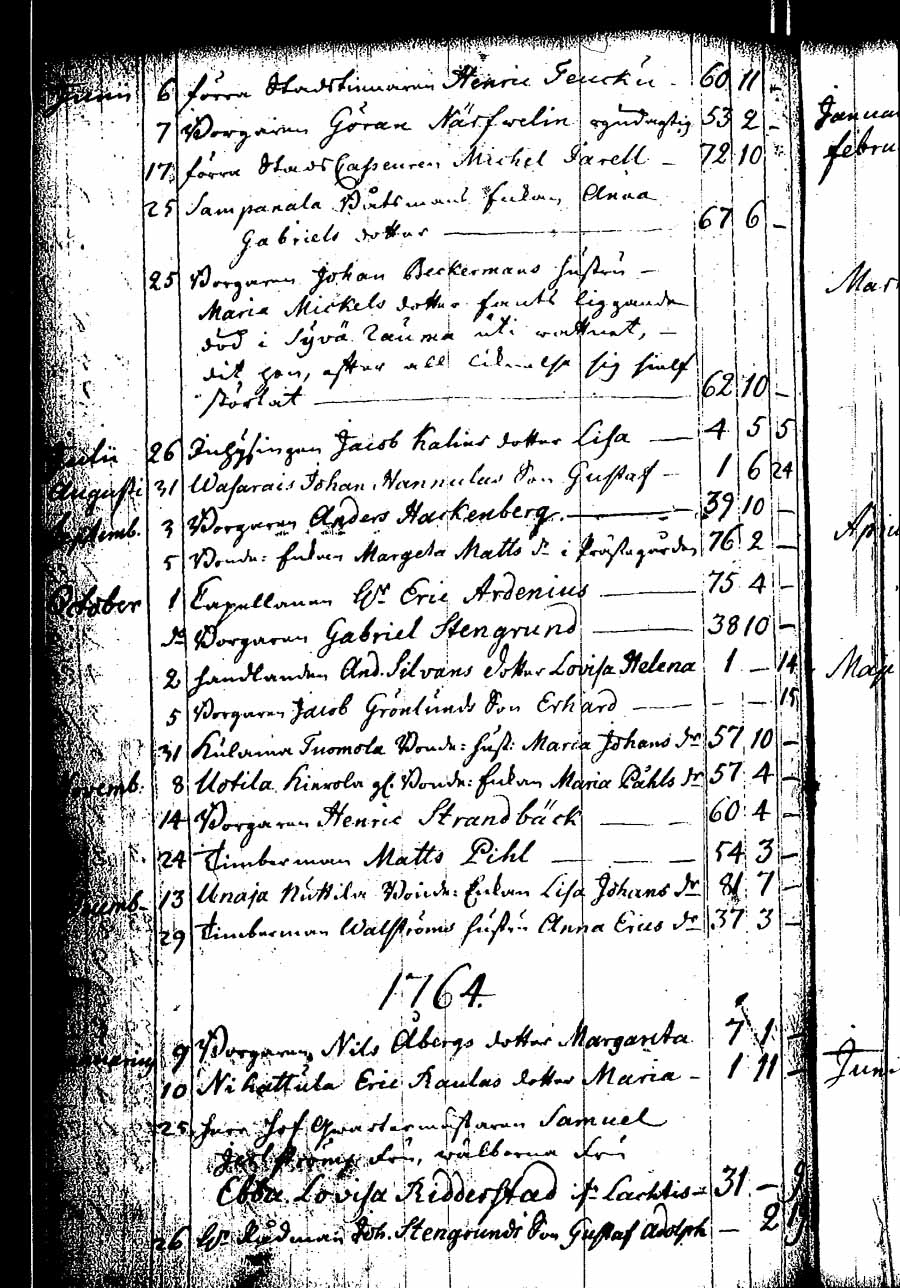 Junii 6 förra Stadstienaren Henric Feuck'n - 60 11 -
7 Borgaren Göran Näsfwelin 53 2 -
17 förra Stads Casseuren Michel Parell - 72 10
25 Sampanala Båtsmans Enkan Anna
Gabriels dotter 67 6 -
25 Borgaren Johan Beckermans hustru -
Maria Mickels dotter fants liggande
död i Syvä Rauma uti wattnet, -
dit hon, efter all liknelse sig sielf
störtat 62 10 -
Julii 26 Inhysingen Jacob Kalins dotter Lisa 4 5 5
Augusti 31 Wasarais Johan Hannulas Son Gustaf - 1 6 24
Septemb. 3 Borgaren Anders Hackenberg. 39 10 -
5 Bonde: Enkan Margeta Matts dr i Prästegården 76 2 -
October 1 Capellanen Hr Eric Ardenius 75 4 -
do Borgaren Gabriel Stengrund 38 10 -
2 handlanden And. Silvans dotter Lovisa Helena 1 - 14
5 Borgaren Jacob Grönlunds Son Erhard - - 15
31 Kulama Tuomola Bonde: hust: Maria Johans dr 57 10 -
Novemb. 8 Uotila Kierola gl: Bonde: Enkan Maria Påhls dr 57 4 -
14 Borgaren Henric Strandbäck 60 4 -
24 Timberman Matts Pihl 54 3 -
13 Unaja Nuttila Bonde: Enkan Lisa Johans dr 81 7 -
29 Timberman Walströms hustru Anna Erics dr 37 3 -
1764.
9 Borgaren Nils Åbergs dotter Margareta 7 1 -
10 Nihattula Eric Raulas dotter Maria - 1 11 -
25 herr Hof Qwartermästaren Samuel
Fru, wälborna Fru
Ebba Lovisa Ridderstad fr Lachtis - 31 - 9
26 Hr Rådman Joh. Stengrunds Son Gustaf Adolph - 2 19
Januar
Febru
Mar
Apri
Maji
Juni